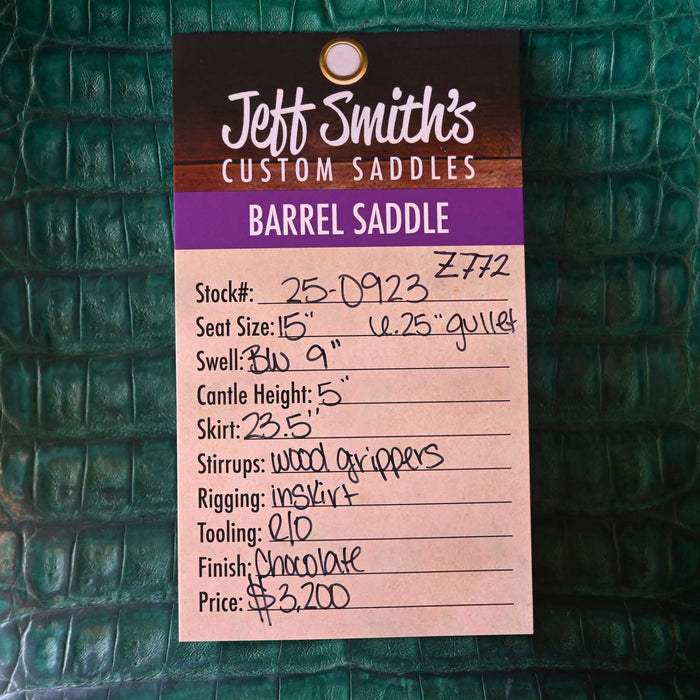 Jeff Smith's
CUSTOM SADDLES
BARREL SADDLE
Z772
Stock#: 25-0923
Seat Size: 15" 6.25" gullet
Swell: BW 9"
Cantle Height: 5"
Skirt: 23.5"
Stirrups: wood grippers
Rigging: inskirt
Tooling: R/O
Finish: Chocolate
Price: $3,200